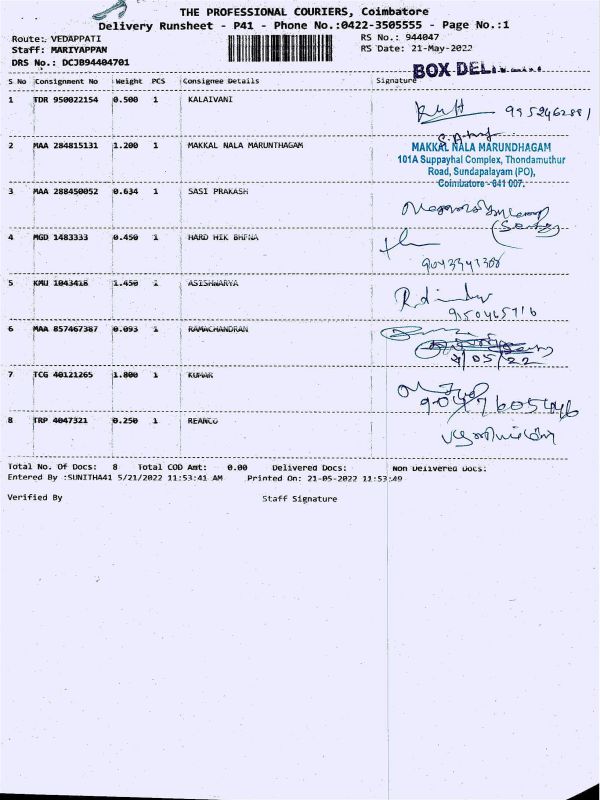 THE PROFESSIONAL COURIERS, Coimbatore
Delivery Runsheet - P41 - Phone No.:0422-3505555 - Page No.:1
Route: VEDAPPATI RS No.: 944047
Staff: MARIYAPPAN RS Date: 21-May-2022
DRS No.: DCJB94404701
BOX
S No Consignment No Weight PCS Consignee Details Signature
1 TDR 950022154 0.500 1 KALAIVANI
2 MAA 284815131 1.200 1 MAKKAL NALA MARUNTHAGAM
MAKKAL NALA MARUNDHAGAM
101A Suppayhal Complex, Thondamuthur
Road, Sundapalayam (PO),
Coimbatore - 641 007.
3 MAA 288450052 0.634 1 SASI PRAKASH
4 MGD 1483333 0.450 1 HARD HIK
5 KMU 1043418 1.450 1 ASISHWARYA
6 MAA 857467387 0.093 1 RAMACHANDRAN
7 TCG 40121265 1.800 1 KUMAR
8 TRP 4047321 0.250 1 REANCO
Total No. Of Docs: 8 Total COD Amt: 0.00 Delivered Docs: Non Delivered Docs:
Entered By :SUNITHA41 5/21/2022 11:53:41 AM Printed On: 21-05-2022 11:53:49
Verified By Staff Signature